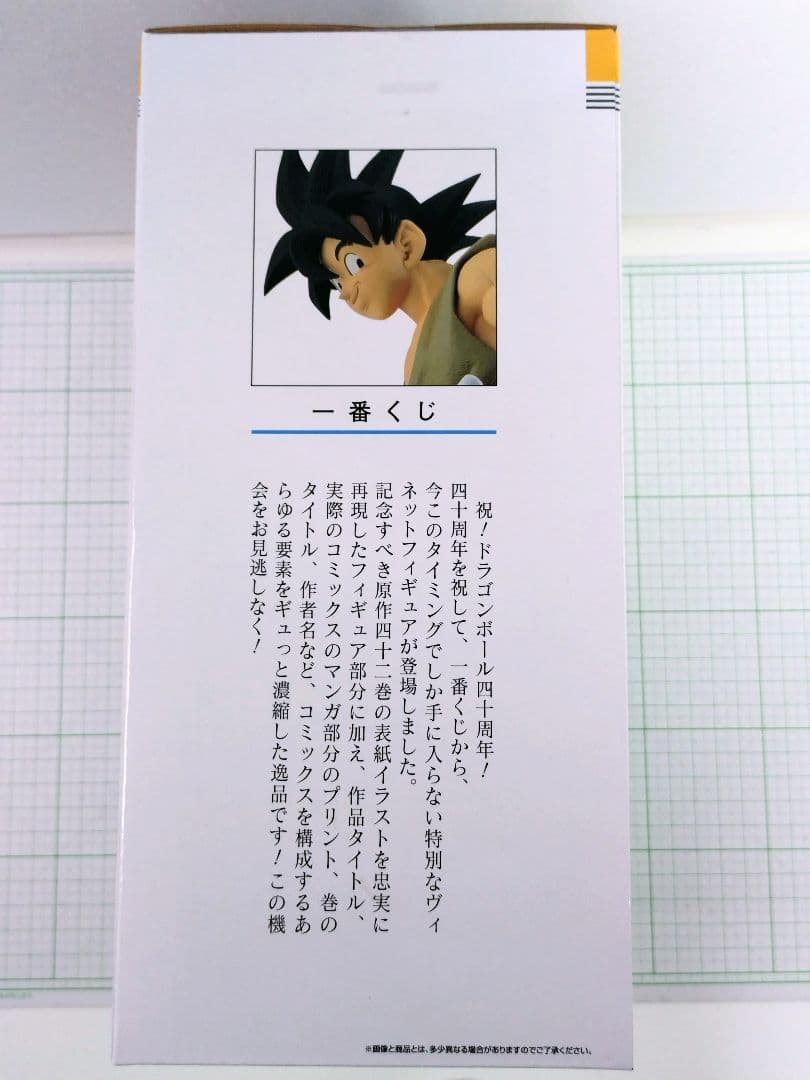 一番くじ
祝！ドラゴンボール四十周年！
四十周年を祝して、一番くじから、
今このタイミングでしか手に入らない特別なヴィ
ネットフィギュアが登場しました。
記念すべき原作四十二巻の表紙イラストを忠実に
再現したフィギュア部分に加え、作品タイトル、
実際のコミックスのマンガ部分のプリント、巻の
タイトル、作者名など、コミックスを構成するあ
らゆる要素をギュっと濃縮した逸品です！この機
会をお見逃しなく！
※画像と商品とは、多少異なる場合がありますのでご了承ください。